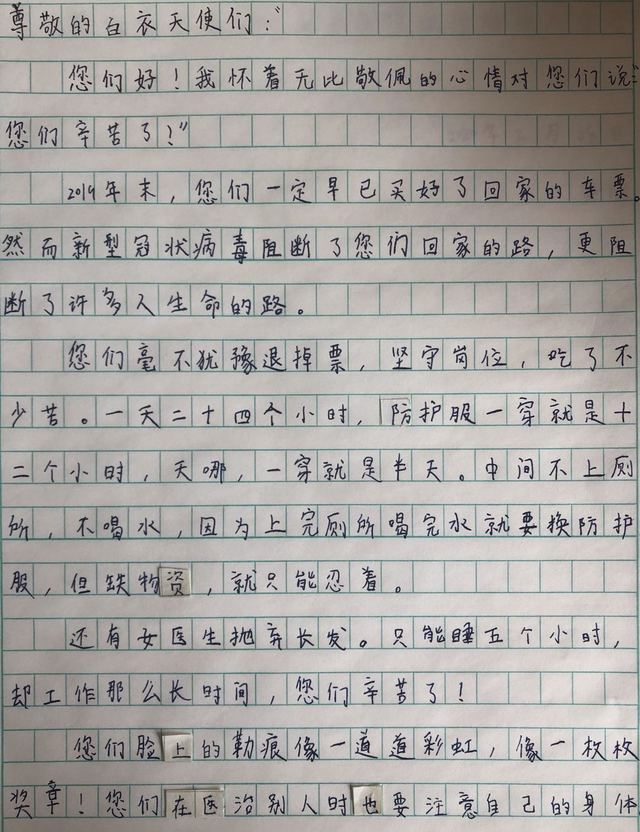 尊敬的白衣天使们：“
您们好！我怀着无比敬佩的心情对您们说：“
您们辛苦了！”
2019年末，您们一定早已买好了回家的车票。
然而新型冠状病毒阻断了您们回家的路，更阻
断了许多人生命的路。
您们毫不犹豫退掉票，坚守岗位，吃了不
少苦。一天二十四个小时，防护服一穿就是十
二个小时，天哪，一穿就是半天。中间不上厕
所，不喝水，因为上完厕所喝完水就要换防护
服，但缺物资，就只能忍着。
还有女医生抛弃长发。只能睡五个小时，
却工作那么长时间，您们辛苦了！
您们脸上的勒痕像一道道彩虹，像一枚枚
奖章！您们在医治别人时也要注意自己的身体